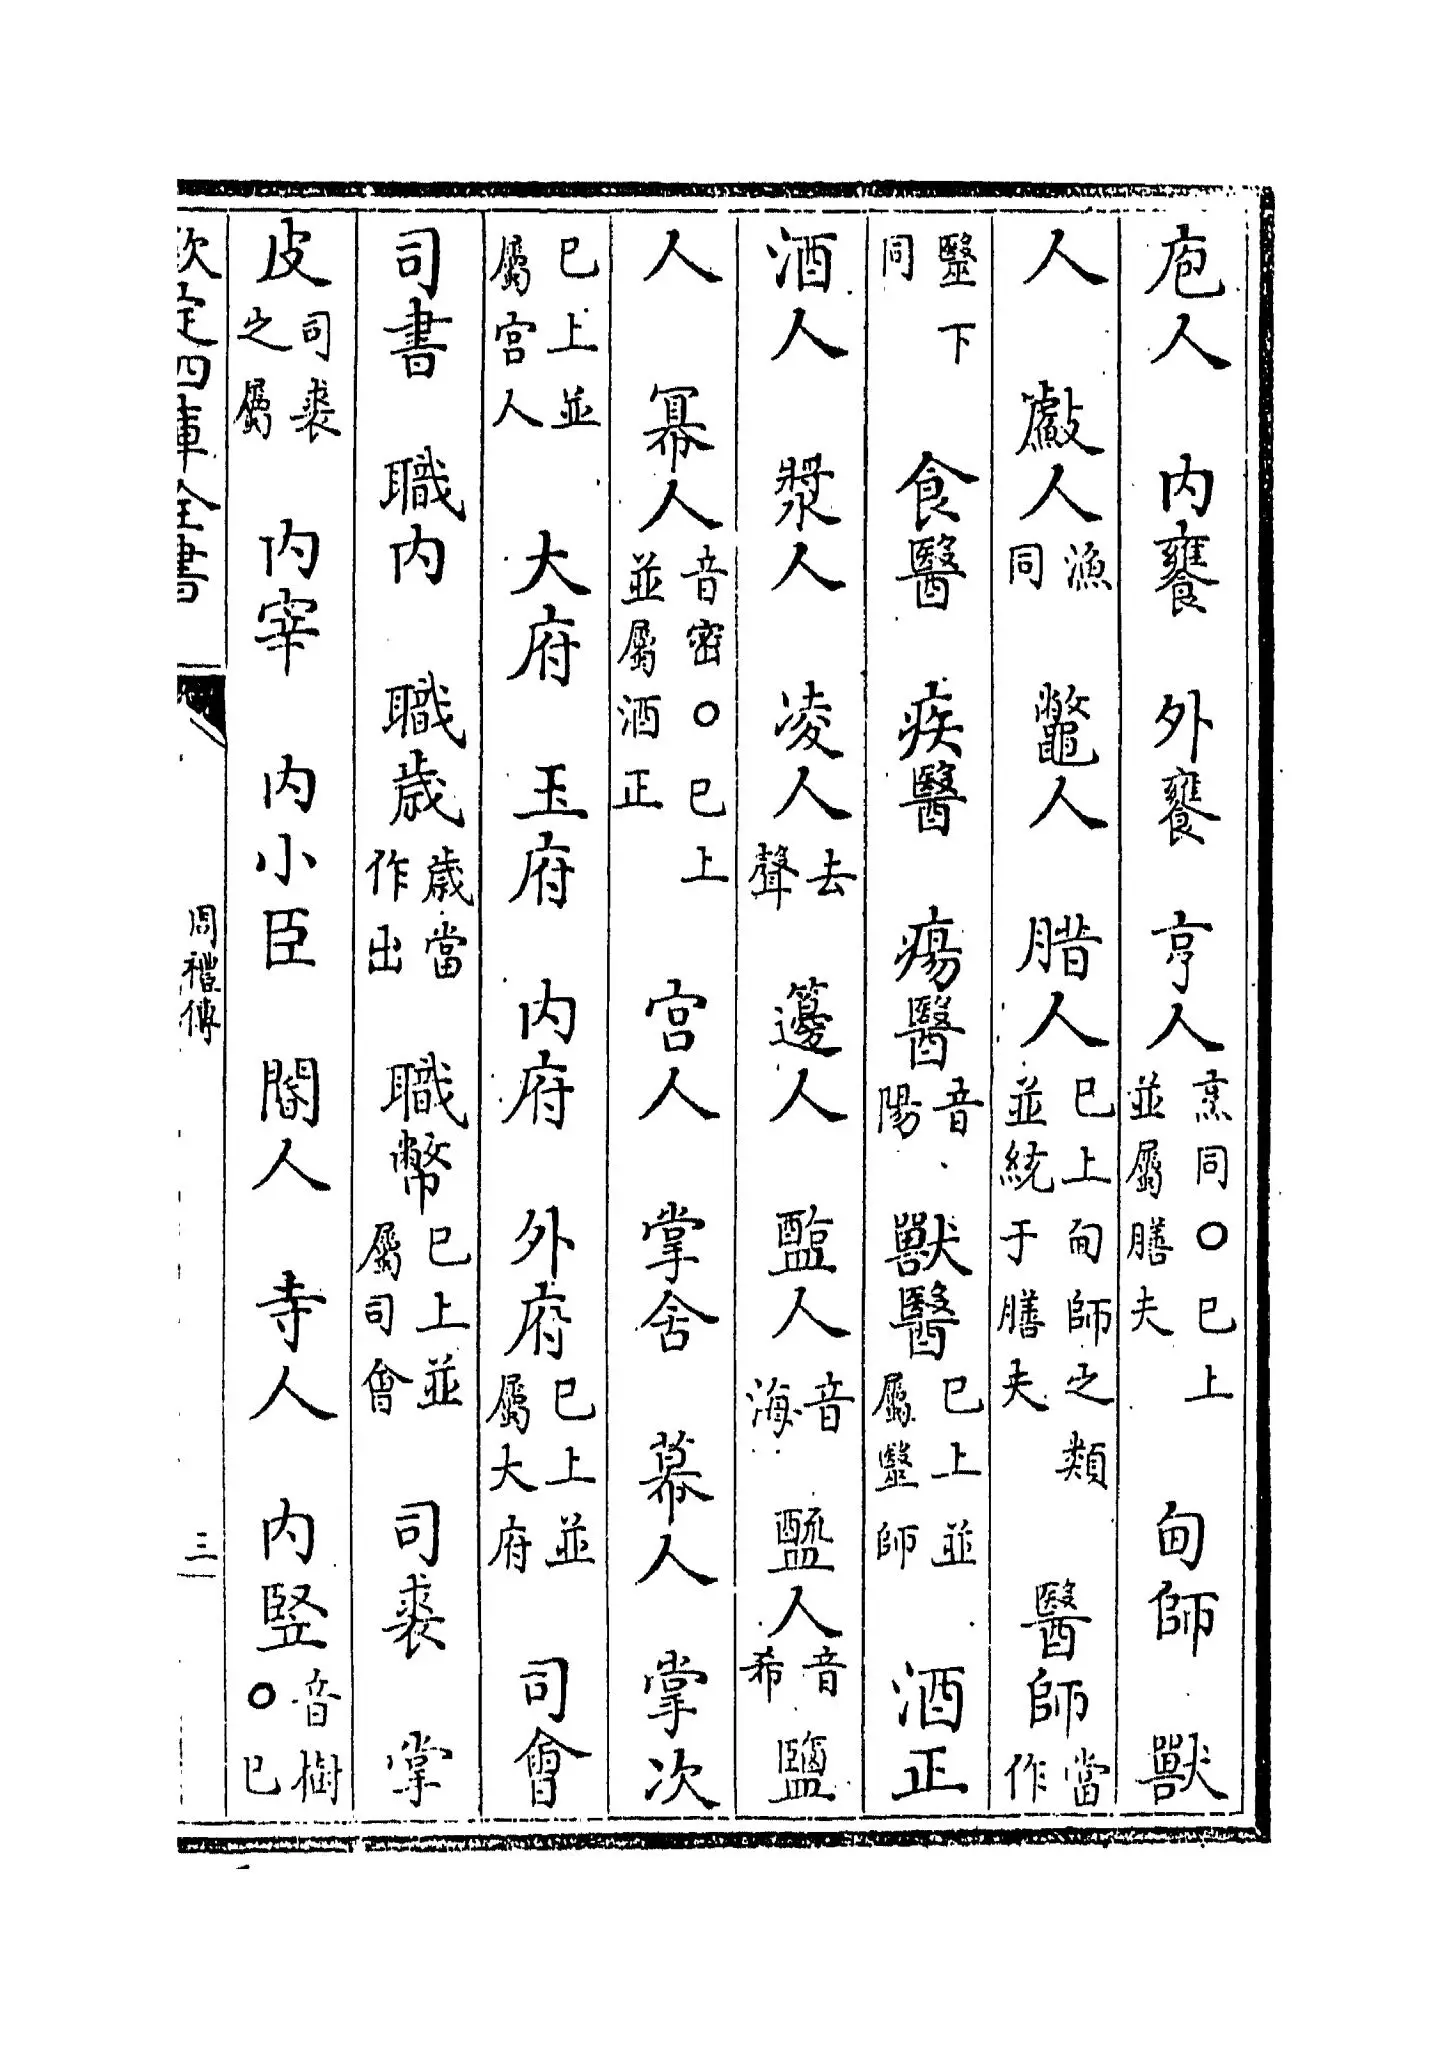 庖人　内饔　外饔　亨人烹同○已上並屬膳夫　甸師　獸
人　䱷人漁同　鼈人　腊人已上甸師之類並統于膳夫　醫師當作
毉下同　食醫　疾醫　瘍醫音陽　獸醫已上並屬毉師　酒正
酒人　漿人　凌人去聲　籩人　醢人音海　醯人音希　鹽
人　冪人音密○已上並屬酒正　宫人　掌舍　幕人　掌次
已上並屬宫人　大府　玉府　内府　外府已上並屬大府　司會
司書　職内　職歲歲當作出　職幣已上並屬司會　司裘　掌
皮司裘之屬　内宰　内小臣　閽人　寺人　内豎音樹○已
欽定四庫全書　周禮傳　三